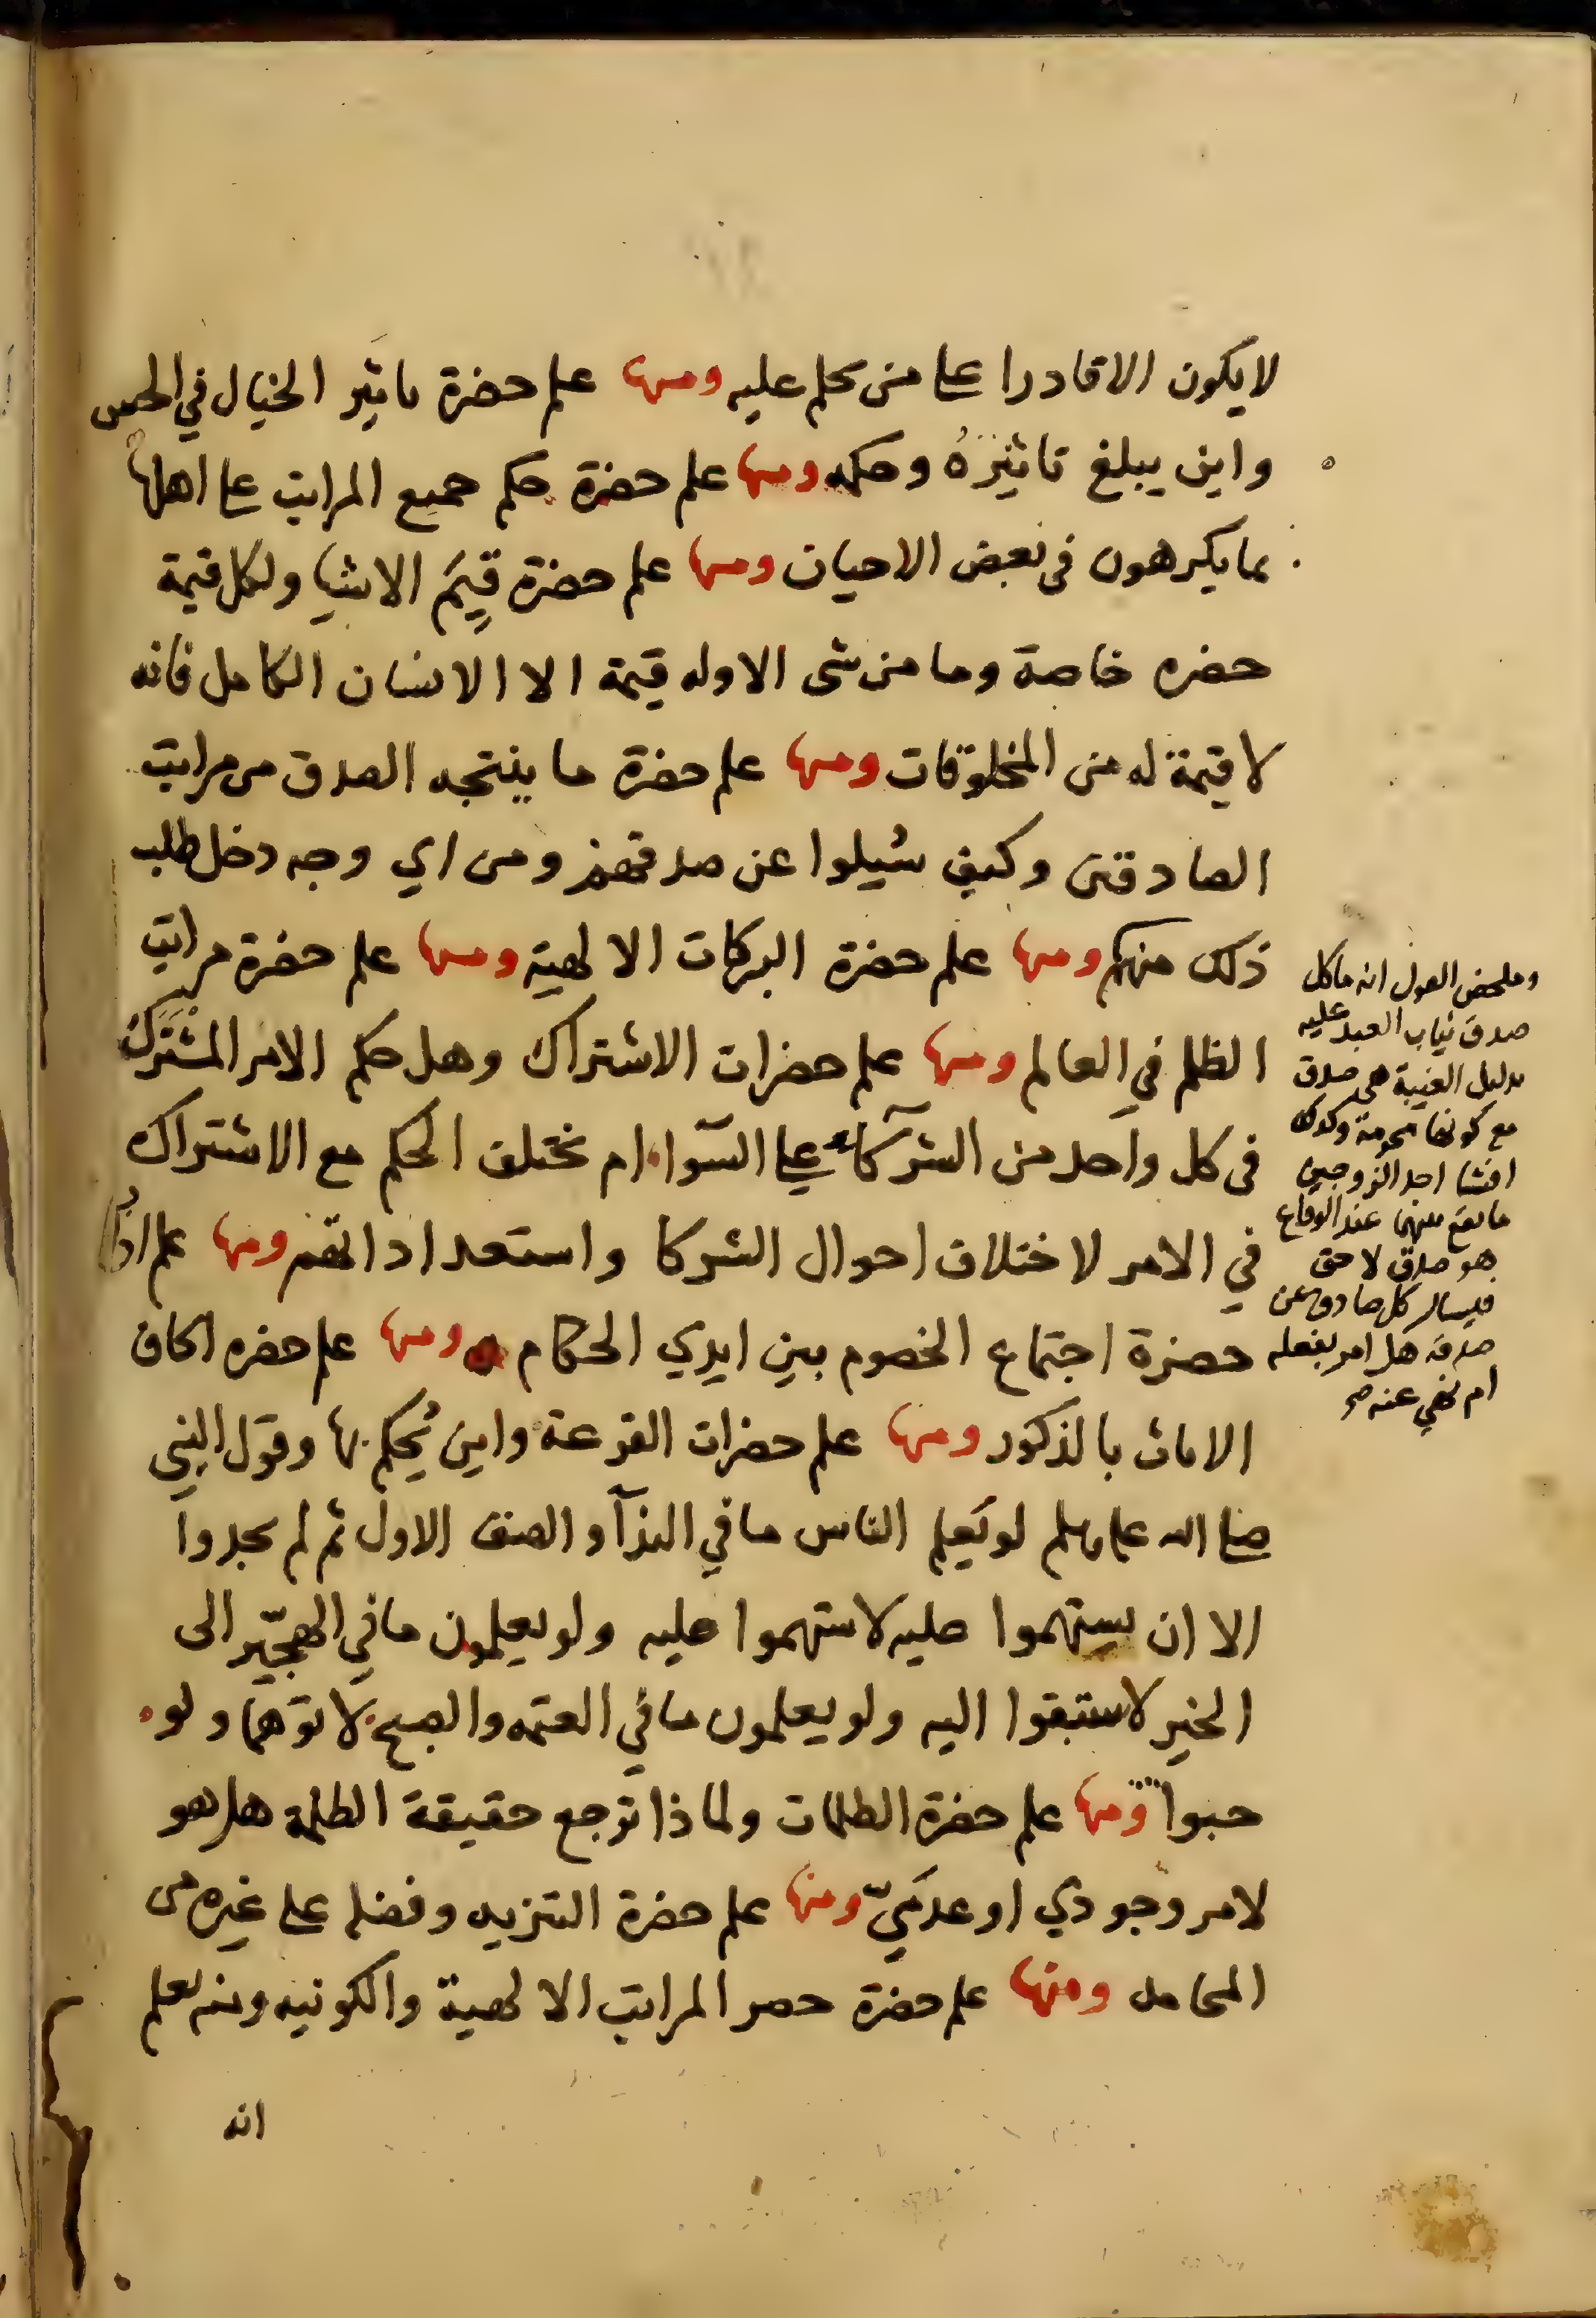 لا يكون الا قادرا على من حكم عليه ومنها علم حضرة تاثير الخيال في الحس
واين يبلغ تاثيرهُ وحكمه ومنها علم حضرة حكم جميع المراتب على اهلها
بما يكرهون فى بعض الاحيان ومنها علم حضرة قِيَم الاشيا ولكل قيمة
حضره خاصة وما من شى الا وله قيمة الا الانسان الكامل فانه
لا قيمة له من المخلوقات ومنها علم حضرة ما ينتجه الصدق من مراتب
الصادقين وكيف سُيلوا عن صدقهم ومن اي وجه دخل طلب
ذلك منهم ومنها علم حضرة البركات الالهية ومنها علم حضرة مراتب
الظلم في العالم ومنها علم حضرات الاشتراك وهل حكم الامر المشتَرك
فى كل واحد من الشركآء على السوآ ام يختلف الحكم مع الاشتراك
في الامر لاختلاف احوال الشركا واستعداداتهم ومنها علم اداب
حضرة اجتماع الخصوم بين ايدي الحكام ومنها علم حضره الحاق
الاناث بالذكور ومنها علم حضرات القرعة واين يُحكم بها وقول النبي
صلى الله عليه وسلم لو يَعلم الناس ما في الندآ والصف الاول ثم لم يجدوا
الا ان يستهموا عليه لاستهموا عليه ولو يعلمون ما في الهجّير الى
الخير لاستبقوا اليه ولو يعلمون ما في العتمه والصبح لاتوهما ولو
حبوا ومنها علم حضرة الظلمات ولماذا ترجع حقيقة الظلمة هل هو
لامر وجودي او عدمَيّ ومنها علم حضرة التنزيه وفضله على غيره من
المحامد ومنها علم حضرة حصر المراتب الالهية والكونيه ومنه يعلم
انه
وملخص القول انه ما كل
صدق يثاب العبد عليه
بدليل الغيبة هى صدق
مع كونها محرمة وكذلك
افشا احد الزوجين
ما يقع بينهما عند الوقاع
هو صدق لا حق
فيسال كل صادق عن
صدقه هل امر بفعله
ام نهي عنه